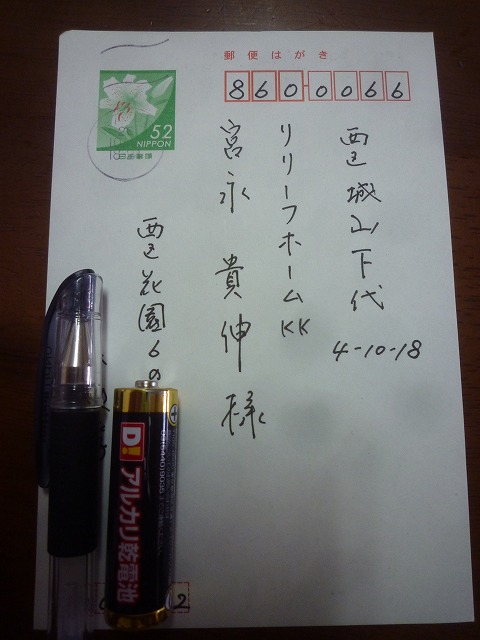 郵便はがき
860-0066
52
NIPPON
日本郵便
西区城山下代
4-10-18
リリーフホームKK
宮永貴伸様
西区花園6の
D!アルカリ乾電池
2